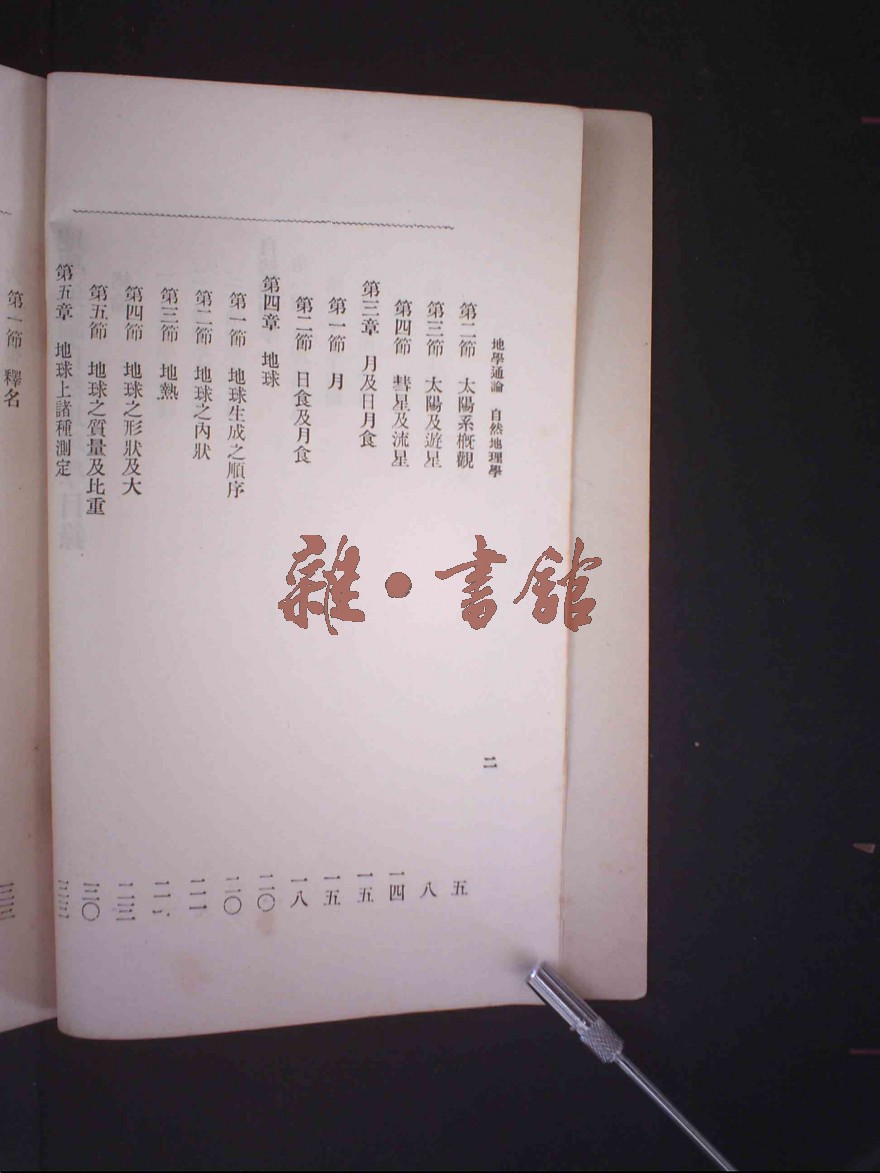 地學通論 自然地理學
二
第二節 太陽系槪觀 五
第三節 太陽及遊星 八
第四節 彗星及流星 一四
第三章 月及日月食 一五
第一節 月 一五
第二節 日食及月食 一八
第四章 地球 二〇
第一節 地球生成之順序 二〇
第二節 地球之內狀 二一
第三節 地熱
第四節 地球之形狀及大 二三
第五節 地球之質量及比重 三〇
第五章 地球上諸種測定 三三
第一節 釋名 三三
雜•書館